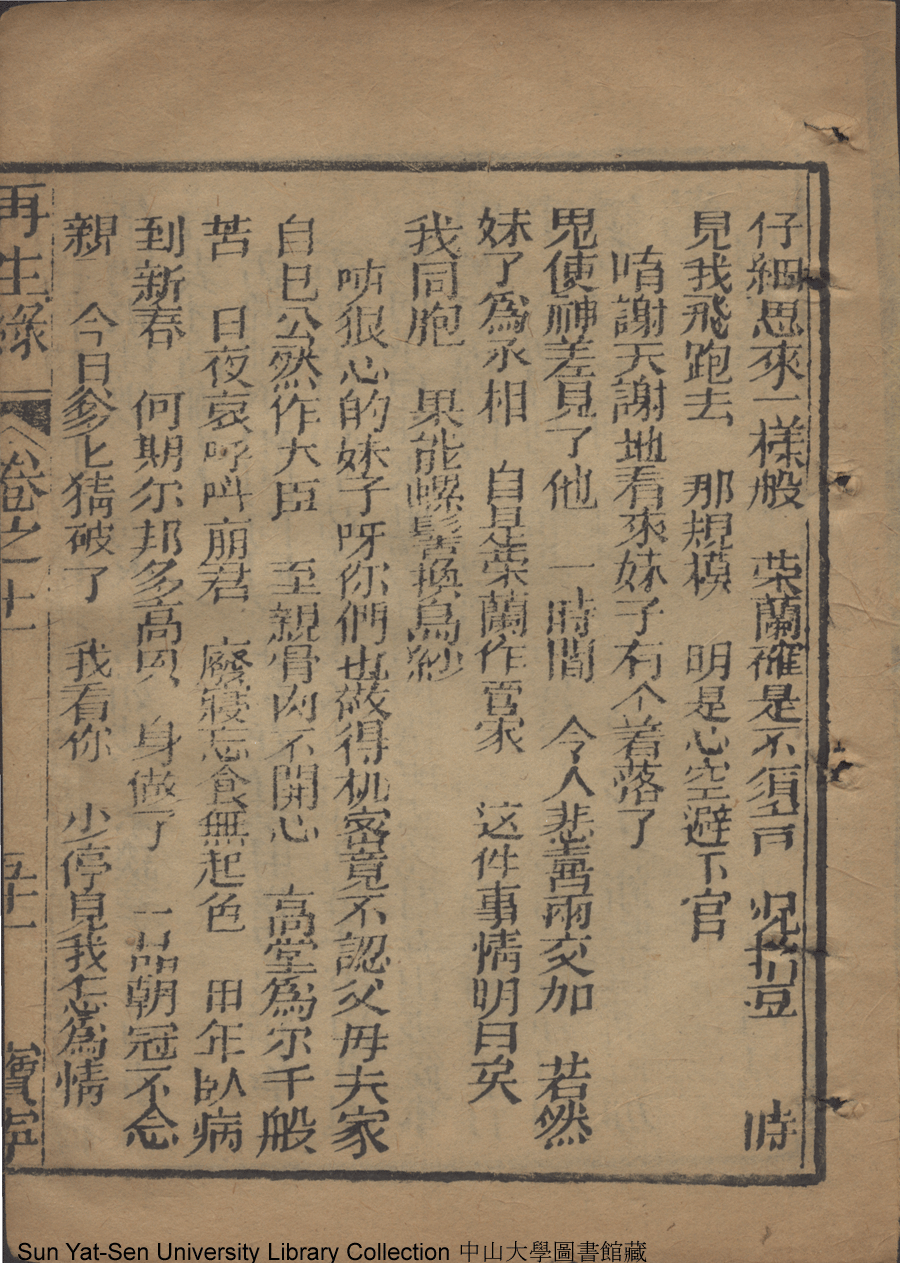 仔細思來一樣般　荣蘭確是不須言　况拉豆　時
見我飛跑去　那規模　明是心空避下官
唷謝天謝地看來妹子有个着落了
鬼使神差見了他　一時間　令人悲喜兩交加　若然
妹了為丞相　自是荣蘭作管家　这件事情明白矣
我同胞　果能螺髻換烏紗
唷狠心的妹子呀你們也做得机密竟不認父毋夫家
自己公然作大臣　至親骨肉不開心　高堂為尔千般
苦　日夜哀呼叫 君　廢寢忘食無起色　甲年臥病
到新春　何期尔邦多高 　身做了　一品朝冠不念
親　今日爹上猜破了　我看你　少停見我怎為情
再生緣　卷之十一　五十一　寶寧
Sun Yat-Sen University Library Collection 中山大學圖書館藏